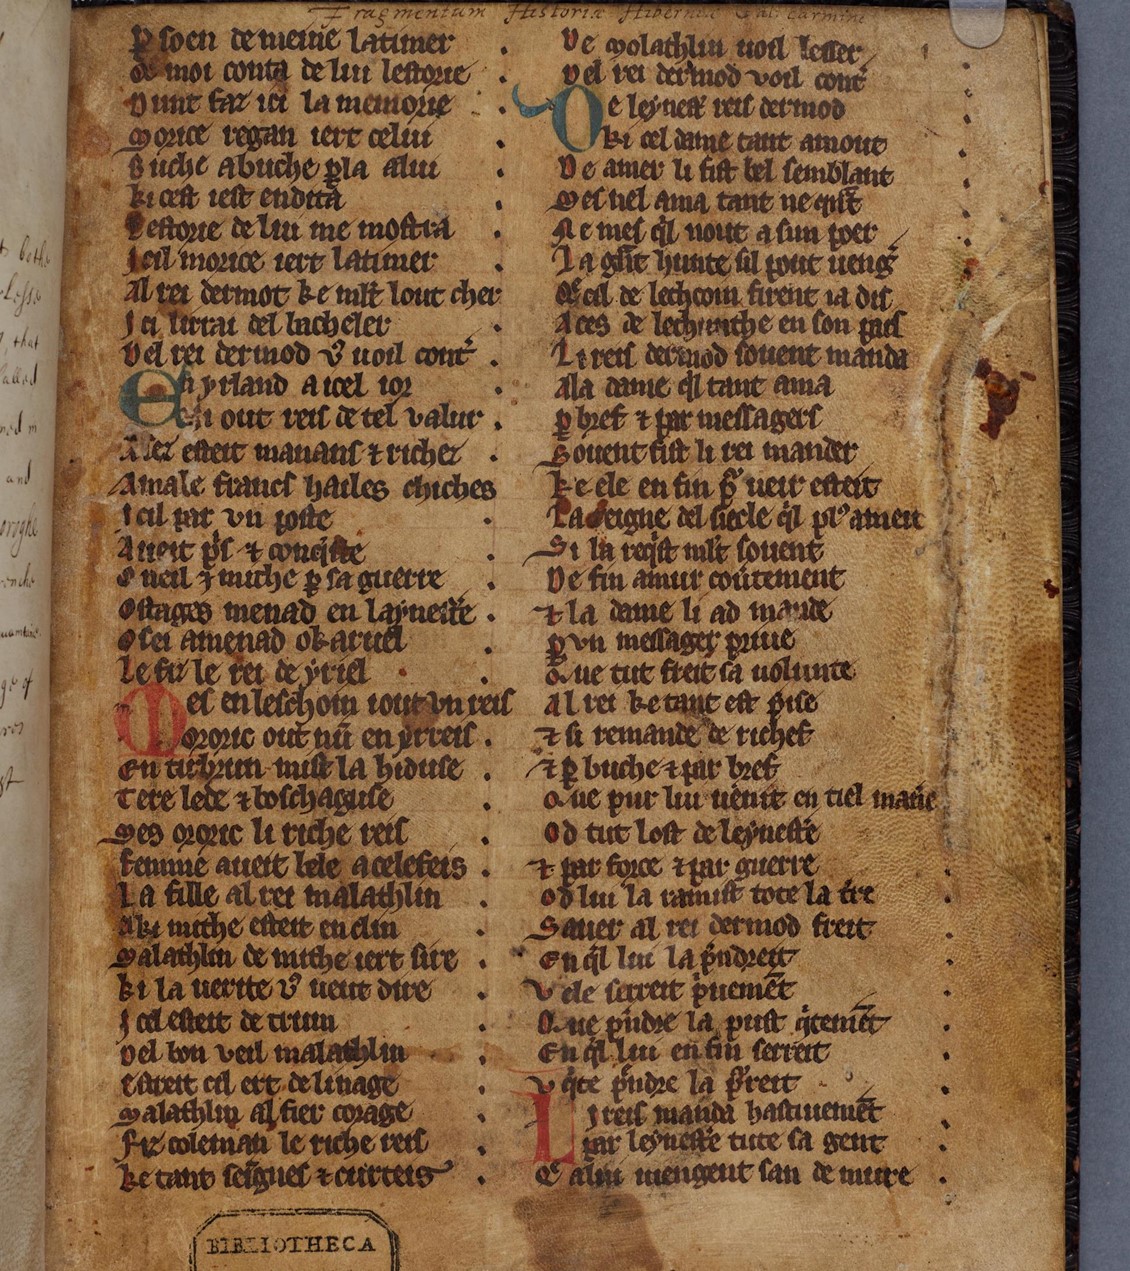 Fragmentum Historiæ Hibernicæ Gall: carmine
Pſoen demeine latimer
Q moi conta de lui leſtorie
Dunt faz ici la memorie
Morice regan iert celui
Buche abuche pla alui
Ki ceſt ieſt endita
Leſtorie de lui me moſtra
Icil morice iert latimer
Al rei dermot ke mlt lout cher
Ici lirrai del bacheler
Del rei dermod v9 uoil cont'
En yrland aicel ior
Ni out reis de tel valur
Aſez eſteit manans ⁊ richez
Amale francs hailes chiches
Icil par vn poſte
Aueit p's ⁊ conq̃ſte
Oneil ⁊ mithe p sa guerre
Oſtages menad en laẏneſt'e
Oſei amenad okaruel
Le fiz le rei de ẏriel
Mes enleſchoin iout vn reis
Ororic out nũ en ẏrreis
En tirbrun miſt la hiduſe
Tere lede ⁊ boſchaguſe
Mes ororic li riche reis
Femme aueit bele acelefeis
La fille al rei malathlin
Aki mithe eſteit enclin
Malathlin de mithe iert ſire
Ki la uerite v9 ueut dire
Icel eſteit de trium
Del bon veil malathlin
Eſtreit cil ert de linage
Malathlin al fier corage
Fiz coleman le riche reis
Ke tant seīgnel ⁊ curteis
De molathlin uoil leſſer
Del rei dermod voil cont'
De leẏneſt' reis dermod
Ki cel dame tant amout
De amer li fiſt bel ſemblant
Mes nel ama tant ne qnt
Ne mes ql uout a sun poer
La gñt hunte sil pout ueng'
Qe cil de lechcoin firent ia dis
A ces de lechunthe en son païs
Li reis dermod souent manda
Ala dame ql tant ama
P bref ⁊ par meſſagers
Souent fiſt li rei mander
Ke ele en fin p' ueir eſteit
La reigne del siecle ql pl9 ameit
Si la reqſt mlt souent
De fin amur couertement
⁊ la dame li ad mande
P vn meſſager priue
Que tut freit sa uolunte
Al rei ke tant eſt p'ise
⁊ si remande de richef
⁊ p buche ⁊ par bref
Que pur lui uenit en tiel manere
Od tut loſt de leẏneſt'e
⁊ par force ⁊ par guerre
Od lui la rauiſt tote la t're
Sauer al rei dermod freit
En ql liu la p'ndreit
V ele serreit p'uemēt
Que p'ndre la puſt q'temēt
En ql liu en fin serreit
V q'te p'ndre la p'reit
Li reis manda haſtiuemēt
Par leẏneſt'e tute sa gent
Qe alui uiengent san demure
BIBLIOTHECA